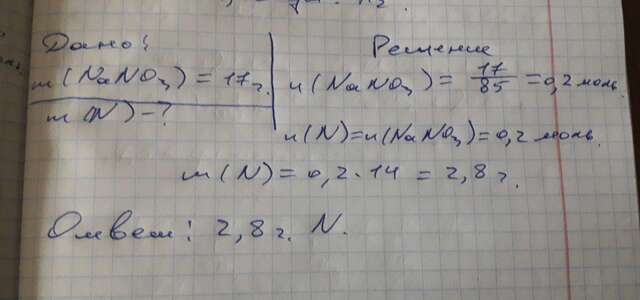 Дано:
m(NaNO3) = 17г.
m(N) - ?
Решение
n(NaNO3) = 17/85 = 0,2 моль.
n(N) = n(NaNO3) = 0,2 моль.
m(N) = 0,2 · 14 = 2,8 г.
Ответ: 2,8 г. N.